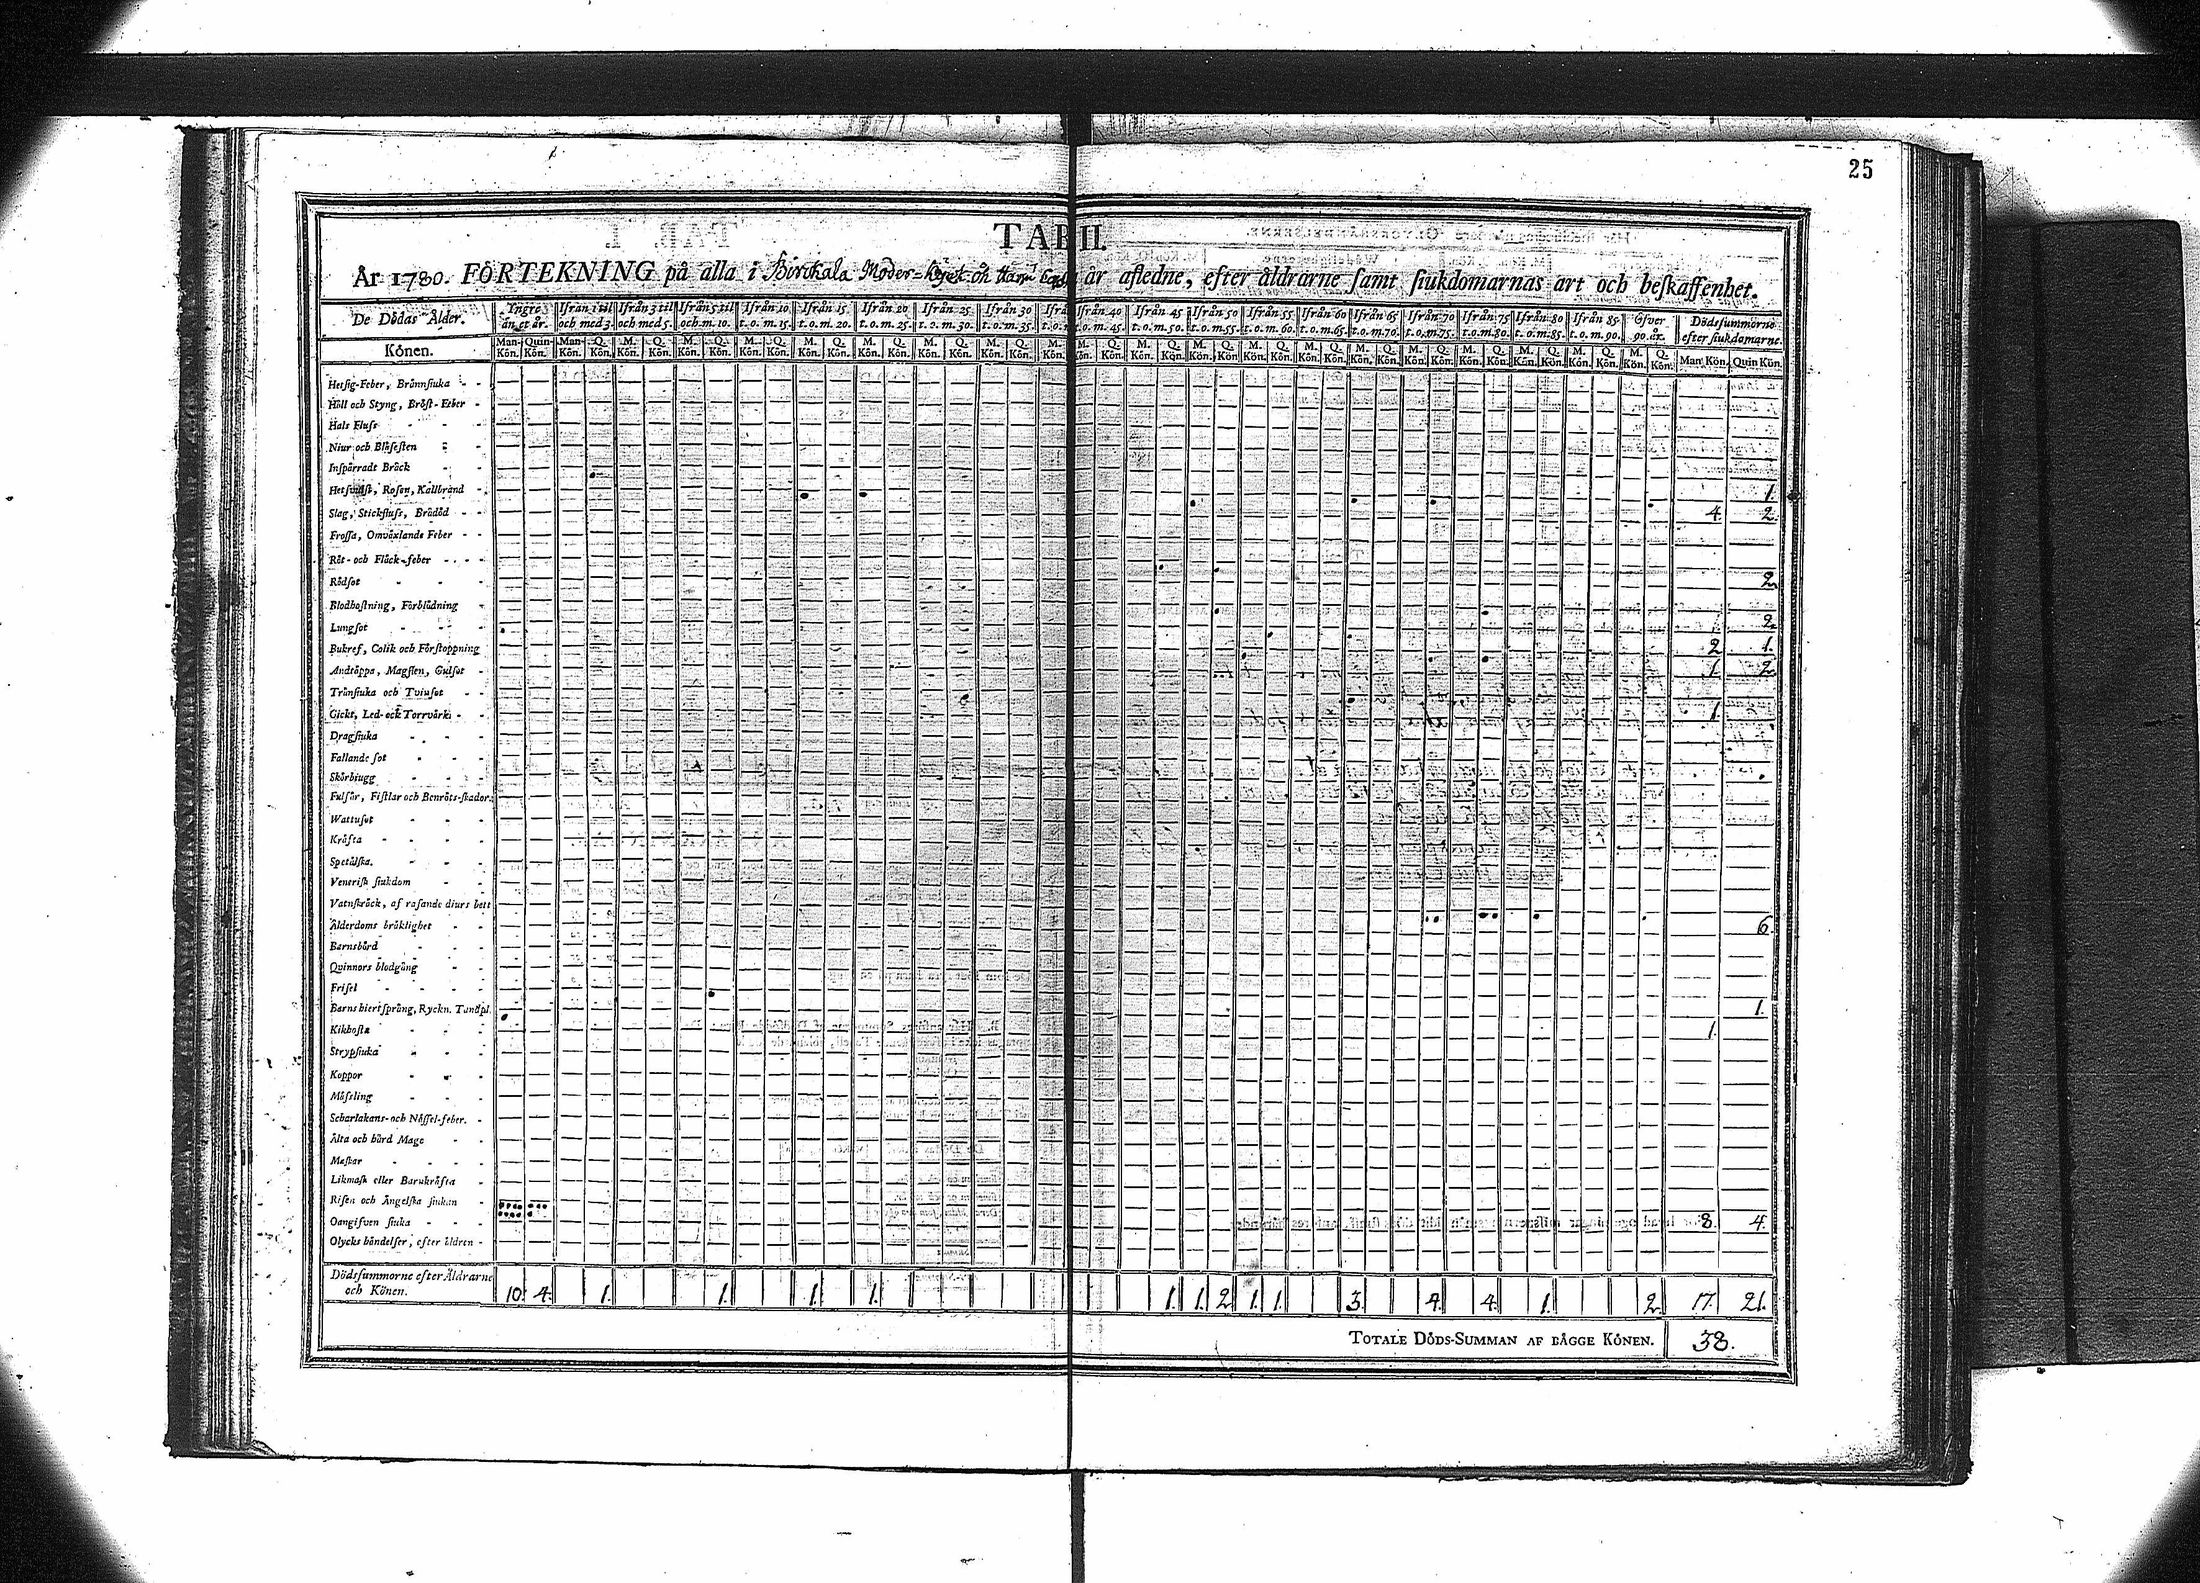 25
TAB II.
År 1780. FÖRTEKNING på alla i Birckala Moder-kyrk. år afledne, efter åldrarne samt siukdomarnas art och beskaffenhet.
De Dödas Ålder. Yngre än et år. Ifrån 1 til och med 3. Ifrån 3 til och med 5. Ifrån 5 til och m. 10. Ifrån 10 t.o.m. 15. Ifrån 15 t.o.m. 20. Ifrån 20 t.o.m. 25. Ifrån 25 t.o.m. 30. Ifrån 30 t.o.m. 35. Ifrån 40 t.o.m. 45. Ifrån 45 t.o.m. 50. Ifrån 50 t.o.m. 55. Ifrån 55 t.o.m. 60. Ifrån 60 t.o.m. 65. Ifrån 65 t.o.m. 70. Ifrån 70 t.o.m. 75. Ifrån 75 t.o.m. 80. Ifrån 80 t.o.m. 85. Ifrån 85 t.o.m. 90. Öfver 90. år. Dödssummorne efter siukdomarne.
Könen. Man-Kön. Quin-Kön. Man-Kön. Q. Kön. M. Kön. Q. Kön. M. Kön. Q. Kön. M. Kön. Q. Kön. M. Kön. Q. Kön. M. Kön. Q. Kön. M. Kön. Q. Kön. M. Kön. Q. Kön. M. Kön. Q. Kön. M. Kön. Q. Kön. M. Kön. Q. Kön. M. Kön. Q. Kön. M. Kön. Q. Kön. M. Kön. Q. Kön. M. Kön. Q. Kön. M. Kön. Q. Kön. M. Kön. Q. Kön. M. Kön. Q. Kön. M. Kön. Q. Kön. Man Kön. Quin Kön.
Hetsig-Feber, Brännsiuka
Håll och Styng, Bröst-Feber
Hals Fluss
Niur och Blåsesten
Inspärradt Bråck
Hetsvulst, Rosen, Kallbrand 1.
Slag, Stickfluss, Brådöd 4. 2.
Frossa, Omväxlande Feber
Röt- och Fläck-feber
Rödsot 2.
Blodhostning, Förblödning
Lungsot 2.
Bukref, Colik och Förstoppning 2 1.
Andtäppa, Magsten, Gulsot 1. 2.
Trånsiuka och Tvinsot
Gickt, Led- och Torrvärk 1.
Dragsiuka
Fallande sot
Skörbiugg
Fulsår, Fistlar och Benröts-skador.
Wattusot
Kräfta
Spetälska.
Venerisk siukdom
Vatnskräck, af rasande diurs bett
Ålderdoms bräklighet 6.
Barnsbörd
Qvinnors blodgång
Frisel
Barns hiertsprång, Ryckn. Tandpl. 1.
Kikhosta 1.
Strypsiuka
Koppor
Måsling
Scharlakans- och Nässel-feber.
Älta och hård Mage
Maskar
Likmask eller Barnkräfta
Risen och Ängelska siukan
Oangifven siuka 8. 4.
Olycks händelser, efter åldren
Dödssummorne efter Åldrarne
och Könen. 10. 4. 1. 1. 1. 1. 1. 1. 2 1. 1. 3. 4. 4. 1. 2. 17. 21.
TOTALE DÖDS-SUMMAN AF BÄGGE KÖNEN. 38.